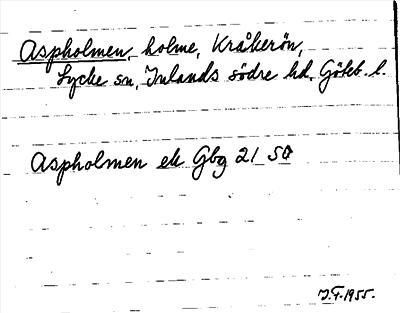 Aspholmen, holme, Kråkerön,
Lycke sn, Inlands södre hd, Göteb. l.
Aspholmen ek Gbg 21 SO
J.F. 1955.